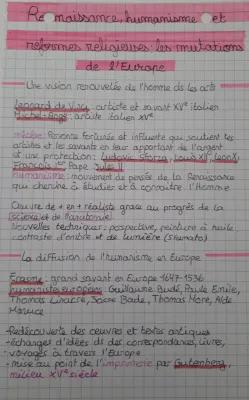 Renaissance, humanisme et
réformes religieuses: les mutations
de l'Europe
Une vision renouvelée de l'homme ds les arts
Leonard de Vinci: artiste et savant XVe italien
Michel-Ange: artiste italien XVe
mécène: Personne fortunée et influente qui soutient les
artistes et les savants en leur apportant de l'argent
et une protection: Ludovic Sforza, Louis XII, Léon X,
François 1er, Pape Jules II
humanisme: mouvement de pensée de la Renaissance
qui cherche à étudier et à connaître l'Homme
Œuvre de + en + réaliste grâce au progrès de la
science et de l'anatomie
Nouvelles techniques: perspective, peinture à huile
contraste d'ombre et de lumière (sfumato)
La diffusion de l'humanisme en Europe
Erasme: grand savant en Europe 1467-1536
humanistes européens: Guillaume Budé, Paule Emile,
Thomas Linacre, Josse Bade, Thomas More, Alde
Manuce
-Redécouverte des œuvres et textes antiques
-échanges d'idées ds des correspondances, livres,
voyages à travers l'Europe
-mise au point de l'imprimerie par Gutenberg,
milieu XVe siècle